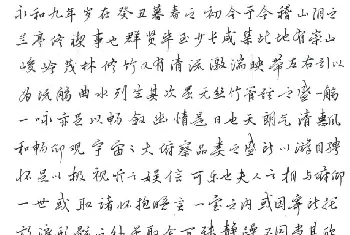 永和九年岁在癸丑暮春之初会于会稽山阴之
兰亭修禊事也群贤毕至少长咸集此地有崇山
峻岭茂林修竹又有清流激湍映带左右引以
为流觞曲水列坐其次虽无丝竹管弦之盛一觞
一咏亦足以畅叙幽情是日也天朗气清惠风
和畅仰观宇宙之大俯察品类之盛所以游目骋
怀足以极视听之娱信可乐也夫人之相与俯仰
一世或取诸怀抱晤言一室之内或因寄所托
放浪形骸之外虽取舍万殊静躁不同当其欣